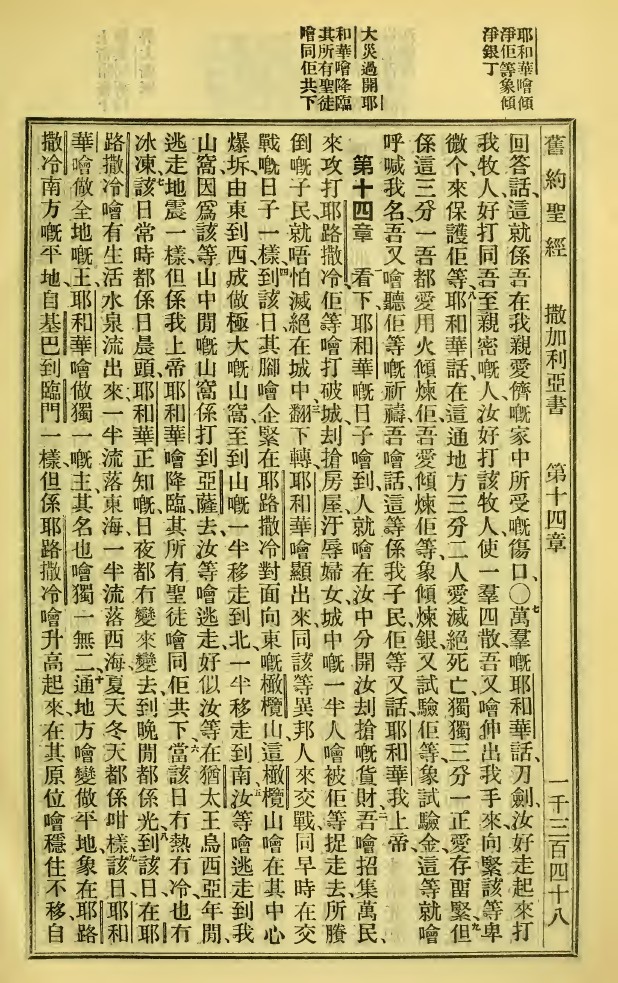 耶和華噲傾
淨佢等象傾
淨銀丁
大災過開耶
和華噲降臨
其所有聖徒
噲同佢共下
舊約聖經 撒加利亞書 第十四章 一千三百四十八
回答話、這就係吾在我親愛儕嘅家中所受嘅傷口、〇七萬羣嘅耶和華話、刀劍、汝好走起來打
我牧人、好打同吾至親密嘅人、汝好打該牧人、使一羣四散、吾又噲伸出我手來向緊該等卑
微个來保護佢等、八耶和華話、在這通地方三分二人愛滅絕死亡、獨獨三分一正愛存畱緊、九但
係這三分一吾都愛用火傾煉佢、吾愛傾煉佢等象傾煉銀、又試驗佢等象試驗金、這等就噲
呼喊我名、吾又噲聽佢等嘅祈禱、吾噲話、這等係我子民、佢等又話、耶和華我上帝、
第十四章 一看下耶和華嘅日子噲到、人就噲在汝中分開汝刦搶嘅貨財、二吾噲招集萬民、
來攻打耶路撒冷、佢等噲打破城、刦搶房屋、汙辱婦女、城中嘅一半人噲被佢等捉走去、所賸
倒嘅子民就唔怕滅絕在城中、三翻下轉、耶和華噲顯出來、同該等異邦人來交戰、同早時在交
戰嘅日子一樣、四到該日其腳噲企緊在耶路撒冷對面向東嘅橄欖山、這橄欖山噲在其中心
爆坼、由東到西成做極大嘅山窩、至到山嘅一半移走到北、一半移走到南、五汝等噲逃走到我
山窩、因爲該等山中閒嘅山窩係打到亞薩去、汝等噲逃走、好似汝等在猶太王烏西亞年閒、
逃走地震一樣、但係我上帝耶和華噲降臨、其所有聖徒噲同佢共下、六當該日冇熱冇冷也冇
冰凍、七該日常時都係日晨頭、耶和華正知嘅、日夜都冇變來變去、到晚閒都係光、八到該日、在耶
路撒冷噲有生活水泉流出來、一半流落東海、一半流落西海、夏天冬天都係咁樣、九該日耶和
華噲做全地嘅王、耶和華噲做獨一嘅主、其名也噲獨一無二、十通地方噲變做平地、象在耶路
撒冷南方嘅平地、自基巴到臨門一樣、但係耶路撒冷噲升高起來、在其原位噲穩住不移、自